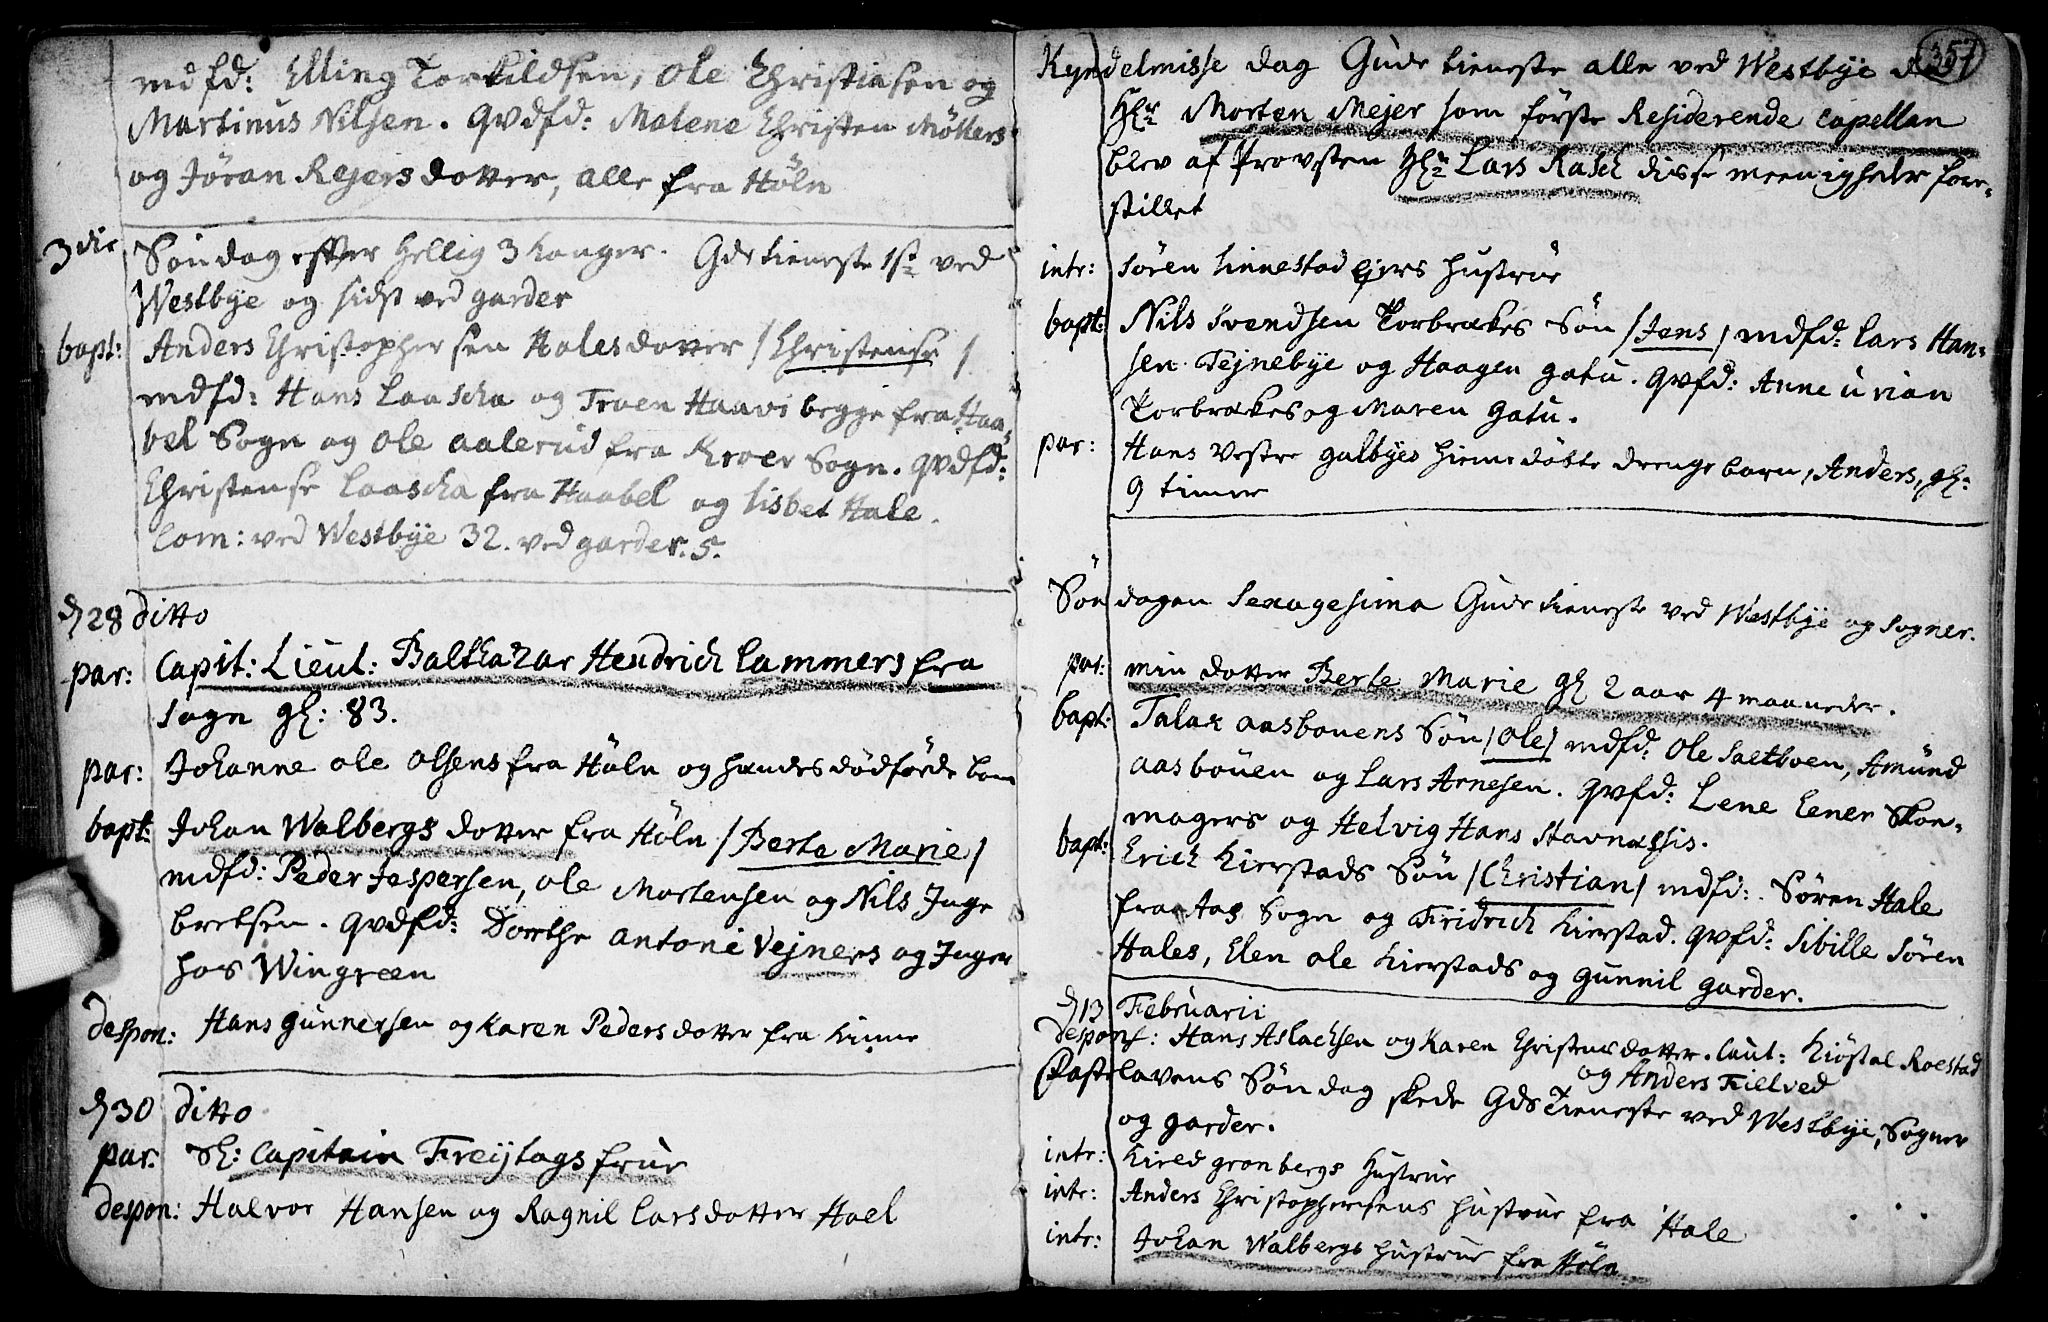 mdfd: Elling Torkildsen, Ole Christiansen og
Martinus Nilsen. qvdfd: Malene Christen Møllers
og Jøran Rejersdotter, alle fra Höln
3die Søndag efter Hellig 3 Konger. Gds tieneste 1st ved
Westbye og sidst ved garder
bapt: Anders Christophersen Holes dotter / Christense /
mdfd: Hans Laascha og Troen Haavi begge fra Haa-
bel Sogn og Ole aalerud fra Kroer Sogn. qvdfd:
Christense Laascha fra Haabel og Lisbet Hale.
Com: ved Westbye 32. ved garder. 5.
d 28 ditto
par: Capit: Lieut: Balthazar Hendrich Lammers fra
Sogn gl: 83.
par: Johanne Ole Olsens fra Höln og hendes dödföde barn
bapt: Johan Walbergs dotter fra Höln / Berte Marie /
mdfd: Peder Jespersen, Ole Mortensen og Nils Inge
bretsen. qvdfd: Dorthe Antoni Vejners og Inger
hos Wingreen
despon: Hans Gunnersen og Karen Pedersdotter fra Kinne
d 30 ditto
par. Sl: Capitain Freytags frue
despon: Halvor Hansen og Ragnil Larsdotter Hoel
357
Kyndelmisse dag Guds tieneste alle ved Westbye da
Hr Morten Mejer som förste Residerende Capellan
blev af Provsten Hr Lars Rasch disse meenigheder fore-
stillet
intr: Sören Linnestad ejers hustrue
bapt: Nils Svendsen Torbrakes Sön / Jens / mdfd: Lars Han-
sen Tejnebye og Haagen gatu. qvfd: Anne Urian
Torbrakes og Maren Gatu.
par: Hans Vestre galbyes hiemedöbte drengebarn, Anders, gl:
9 timer
Söndagen Sexagesima Guds tieneste ved Westbye og Sogner.
par: min dotter Berte Marie gl 2 aar 4 maaneder.
bapt: Talax aasbouens Sön / Ole / mdfd: Ole Saltboen, Amund
aasbouen og Lars Arnesen. qvfd: Lene Eener Skoe-
magers og Helvig Hans Stavnæssis.
bapt: Erich Kierstads Sön / Christian / mdfd: Sören Hale
fra Aas Sogn og Fridrich Kierstad. qvfd: Sibille Sören
Hales, Elen Ole Kierstads og Gunnil garder.
d 13 Februarii
desponf: Hans Aslachsen og Karen Christensdotter. Caut: Kiöstel Roestad
og Anders Fielved
Fastelavens Söndag skede Gds Tieneste ved Westbye, Sogner
og garder.
intr: Kired gronbergs Hustrue
intr: Anders Christophersens hustrue fra Hale
intr: Johan Walbergs hustrue fra Höln